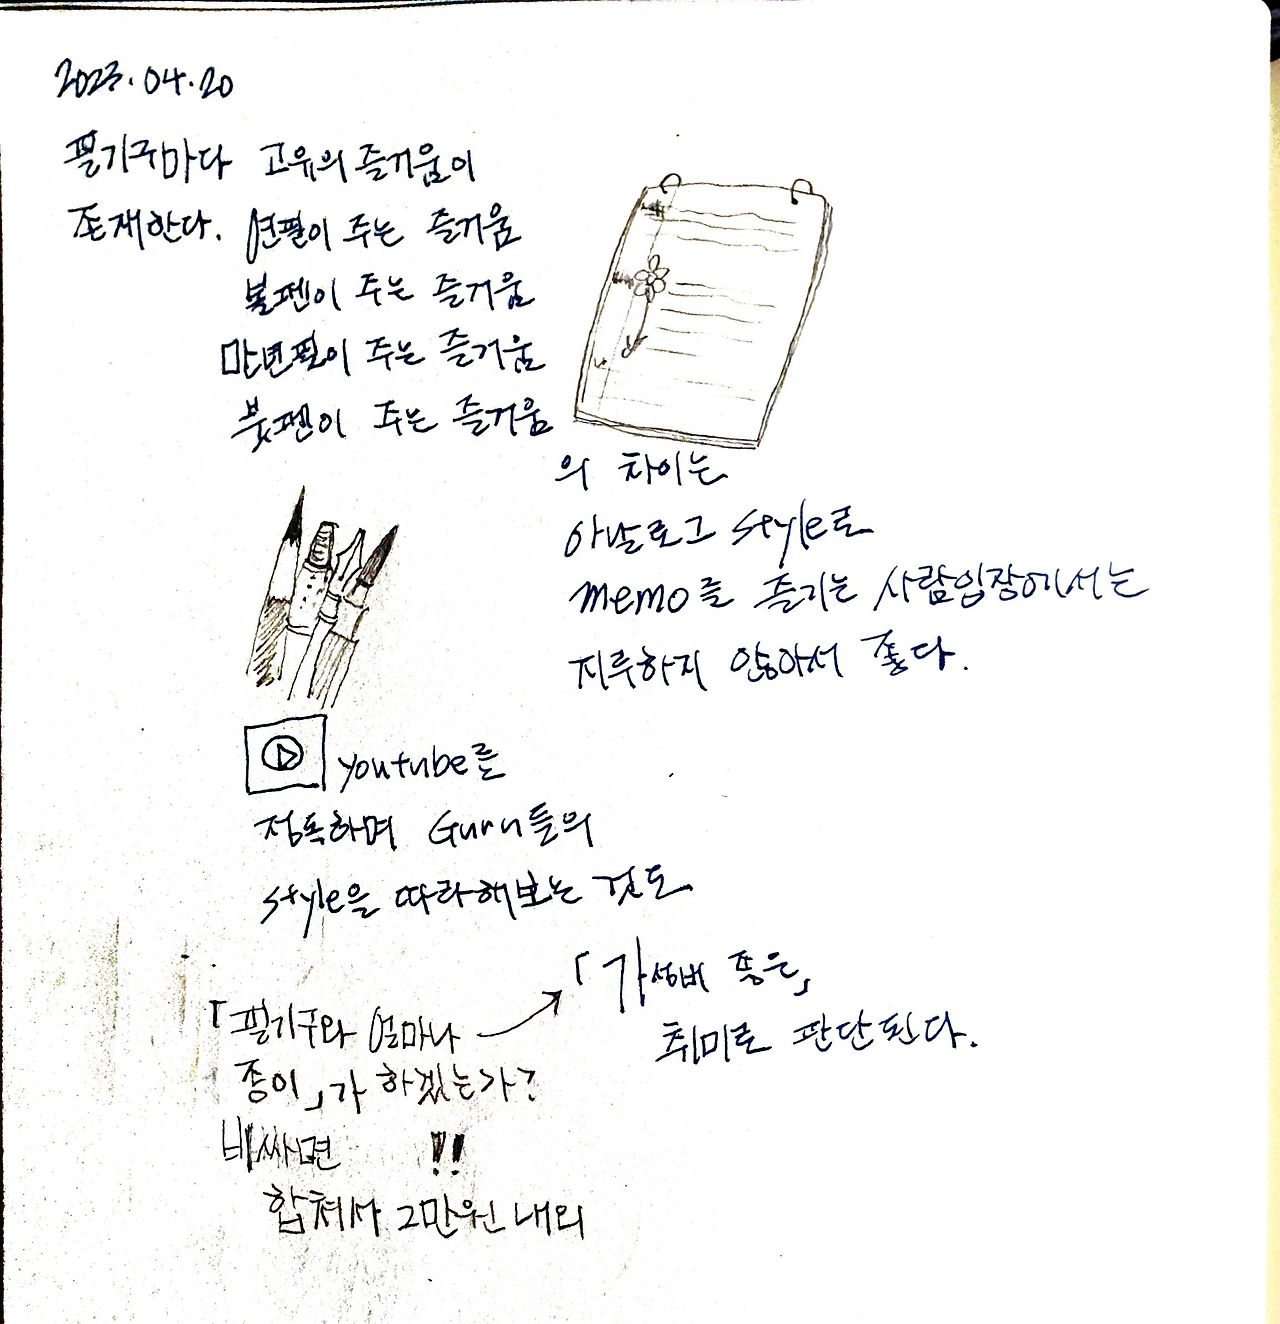 2023.04.20
필기구마다 고유의 즐거움이
존재한다. 연필이 주는 즐거움
볼펜이 주는 즐거움
만년필이 주는 즐거움
붓펜이 주는 즐거움
의 차이는
아날로그 style로
memo를 즐기는 사람입장에서는
지루하지 않아서 좋다.
youtube를
정독하며 Guru들의
style을 따라해보는 것도
「가성비 좋은」
취미로 판단된다.
「필기구와 얼마나
종이」가 하겠는가?
비싸면 !!
합쳐서 2만원 내외